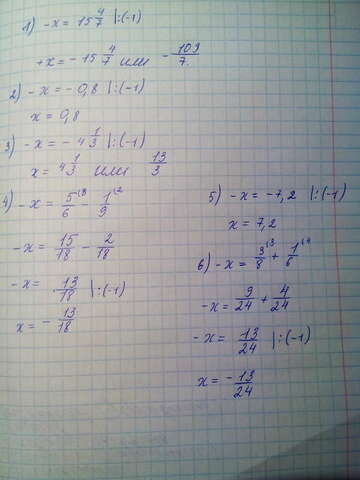 1) -x = 15 4/7 |:(-1)
+x = -15 4/7 или -109/7.
2) -x = -0,8 |:(-1)
x = 0,8
3) -x = -4 1/3 |:(-1)
x = 4 1/3 или 13/3
4) -x = 5/6 |3 - 1/9 |2
-x = 15/18 - 2/18
-x = 13/18 |:(-1)
x = -13/18
5) -x = -7,2 |:(-1)
x = 7,2
6) -x = 3/8 |3 + 1/6 |4
-x = 9/24 + 4/24
-x = 13/24 |:(-1)
x = -13/24